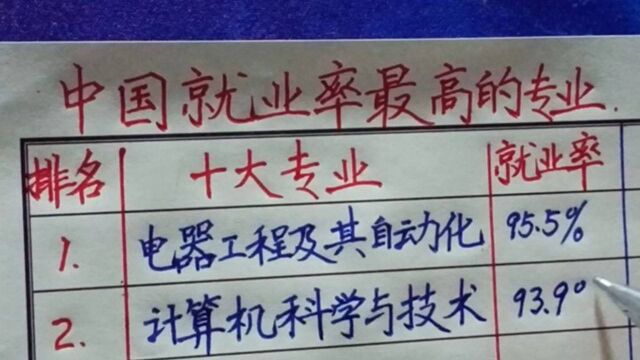 中国就业率最高的专业.
排名 十大专业 就业率
1. 电器工程及其自动化 95.5%
2. 计算机科学与技术 93.9%